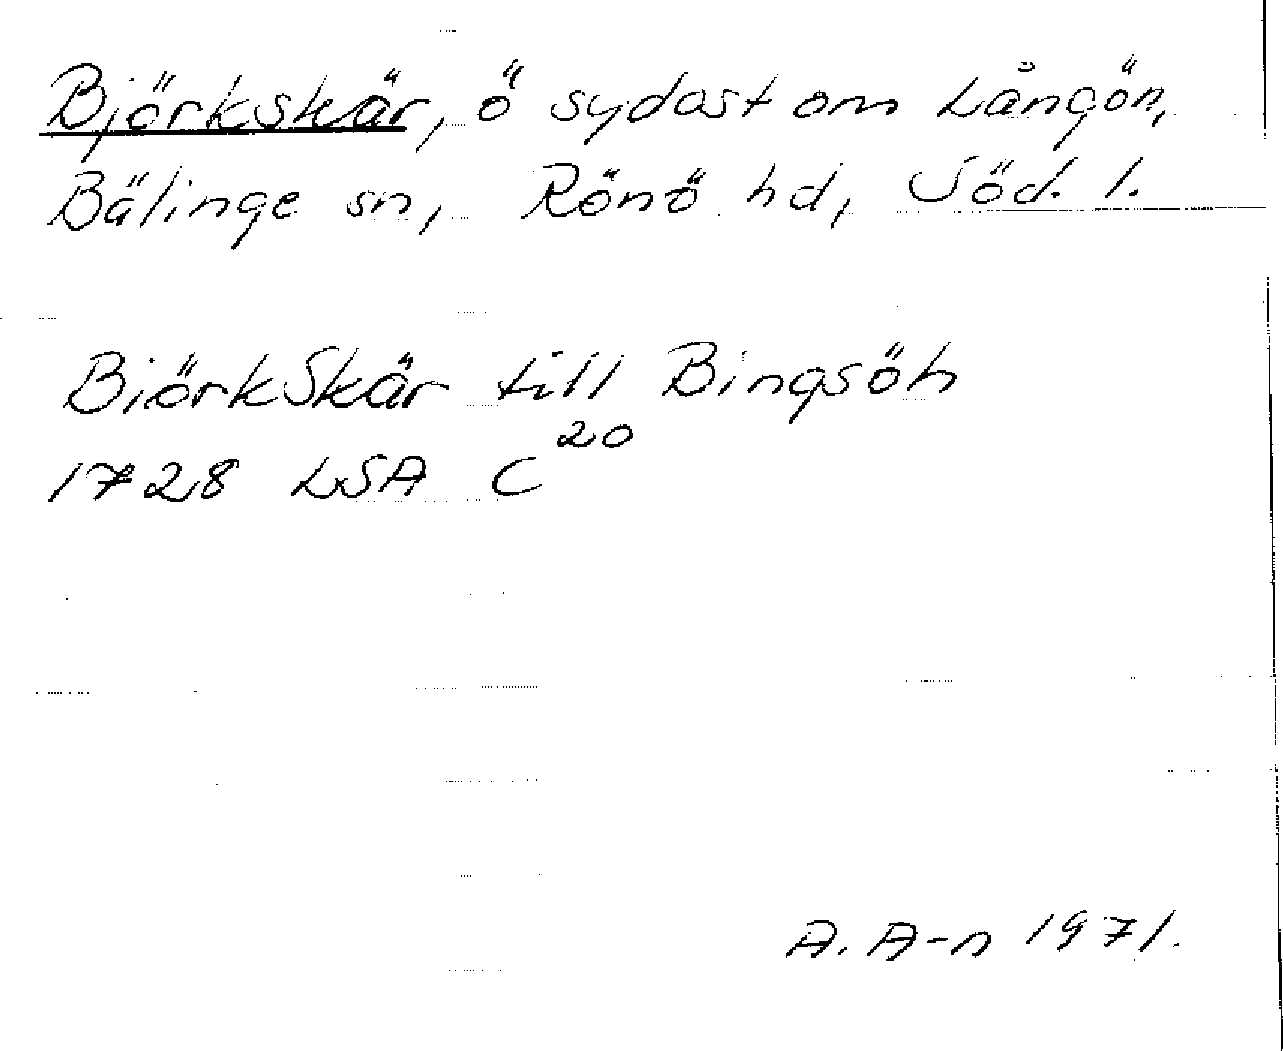 Björkskär, ö sydost om Långön,
Bälinge sn, Rönö hd, Söd. l.
BiörkSkär till Bingsöh
1728 LSA C20
A. A-n 1971.